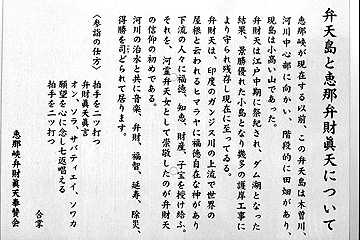 弁天島と恵那弁財眞天について
恵那峡が現在する以前、この弁天島は木曽川、
河川中心部に向かい、階段的に田畑があり、
現島は小高い山であった。
弁財天は江戸中期に祭紀され、ダム湖となった
結果、景勝優れた小島となり幾多の護岸工事に
より守られ残存し現在に至ってる。
弁財天は、印度のガンジス川の上流で世界の
屋根と云われるヒマラヤに福徳自在な神があり
下流の人々に福徳、知恵、財産、子宝を授け給ふ。
それを、河霊弁天女として崇敬したのが弁財天
の信仰の初めである。
河川の治水と共に音楽、弁財、福智、延寿、除災、
得勝を司どられて居ります。
(参詣の仕方)
拍手を二ツ打つ
弁財眞天真言
オン、ソラ、サバティエイ、ソワカ
願望を心に念じ七返唱える
拍手を二ツ打つ
合掌
恵那峡弁財眞天奉賛会